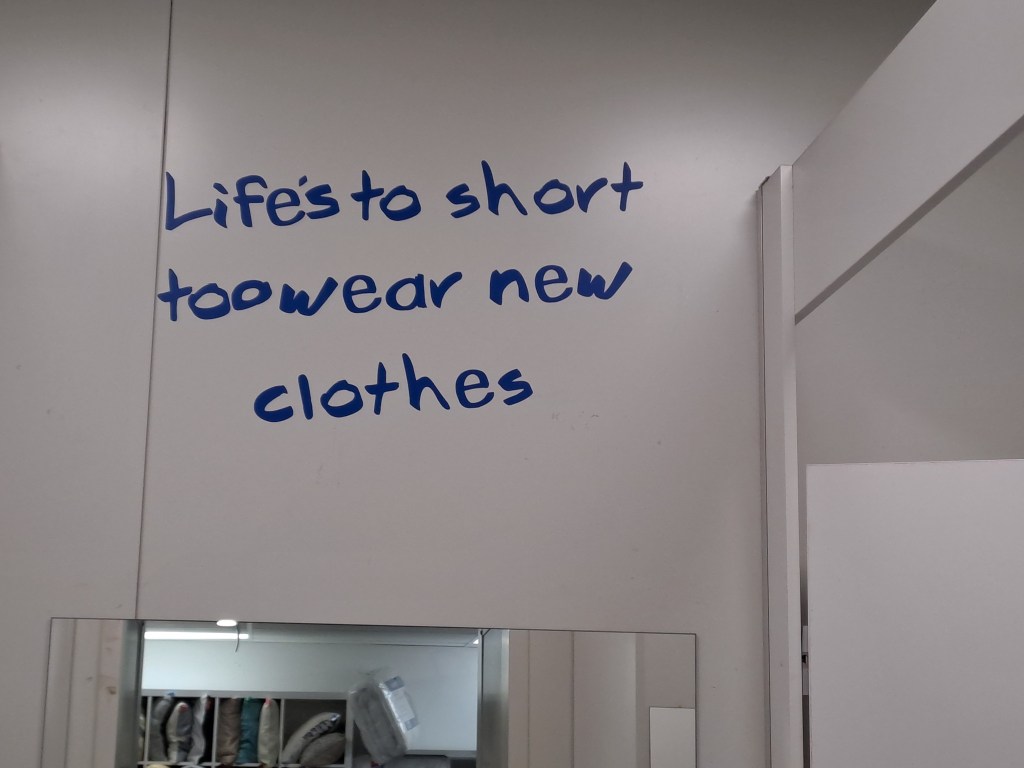 Life's to short
too wear new
clothes